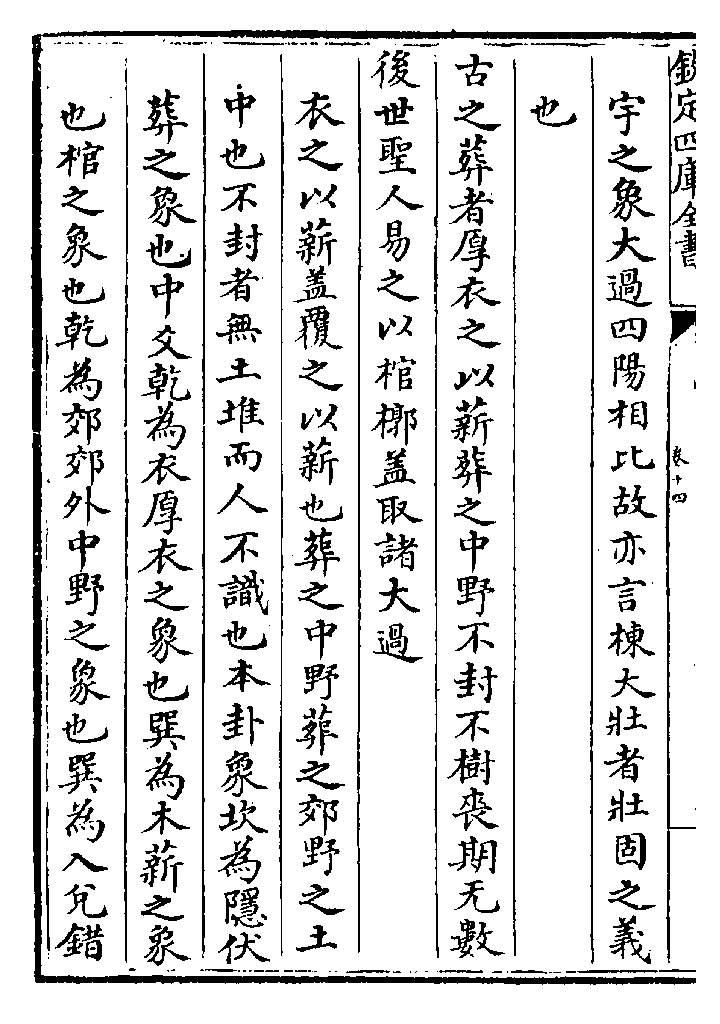 欽定四庫全書
卷十四
宇之象大過四陽相比故亦言棟大壯者壯固之義
也
古之葬者厚衣之以薪葬之中野不封不樹喪期无數
後世聖人易之以棺槨盖取諸大過
衣之以薪盖覆之以薪也葬之中野葬之郊野之土
中也不封者無土堆而人不識也本卦象坎為隱伏
葬之象也中爻乾為衣厚衣之象也巽為木薪之象
也棺之象也乾為郊郊外中野之象也巽為入兌錯